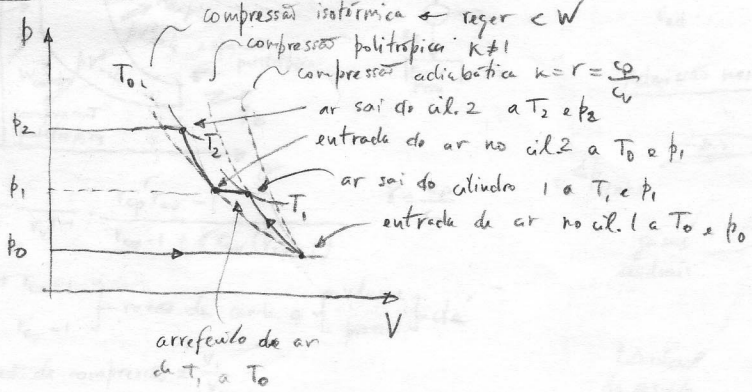 compressão isotérmica ← reger < W
p
compressão politrópica K≠1
T₀
compressão adiabática κ = r = cp/cv
ar sai do cil. 2 a T₂ e p₂
p₂
T₂
entrada do ar no cil. 2 a T₀ e p₁
p₁
ar sai do cilindro 1 a T₁ e p₁
T₁
entrada de ar no cil. 1 a T₀ e p₀
p₀
V
arrefecido de ar
de T₁ a T₀